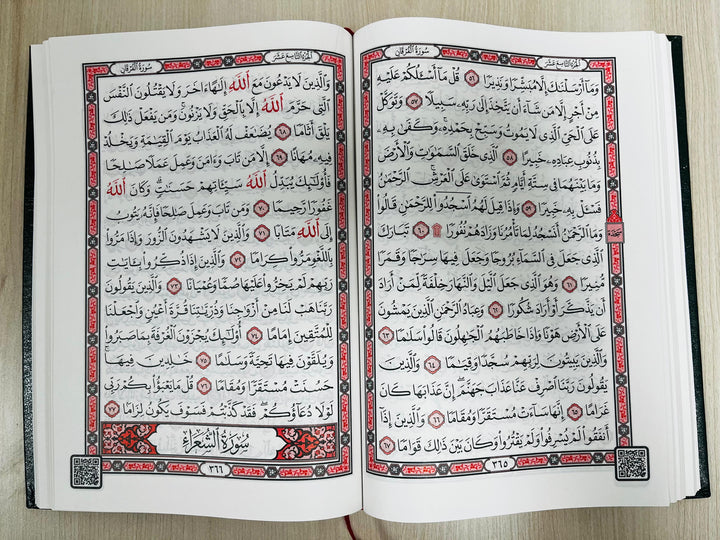 سُورَةُ الفُرْقَانِ
الجُزْءُ التَّاسِعَ عَشَرَ
وَمَآ أَرْسَلْنَٰكَ إِلَّا مُبَشِّرًا وَنَذِيرًا ٥٦ قُلْ مَآ أَسْـَٔلُكُمْ عَلَيْهِ
مِنْ أَجْرٍ إِلَّا مَن شَآءَ أَن يَتَّخِذَ إِلَىٰ رَبِّهِۦ سَبِيلًا ٥٧ وَتَوَكَّلْ
عَلَى ٱلْحَىِّ ٱلَّذِى لَا يَمُوتُ وَسَبِّحْ بِحَمْدِهِۦ ۚ وَكَفَىٰ بِهِۦ
بِذُنُوبِ عِبَادِهِۦ خَبِيرًا ٥٨ ٱلَّذِى خَلَقَ ٱلسَّمَٰوَٰتِ وَٱلْأَرْضَ
وَمَا بَيْنَهُمَا فِى سِتَّةِ أَيَّامٍ ثُمَّ ٱسْتَوَىٰ عَلَى ٱلْعَرْشِ ۚ ٱلرَّحْمَٰنُ
فَسْـَٔلْ بِهِۦ خَبِيرًا ٥٩ وَإِذَا قِيلَ لَهُمُ ٱسْجُدُوا۟ لِلرَّحْمَٰنِ قَالُوا۟
وَمَا ٱلرَّحْمَٰنُ أَنَسْجُدُ لِمَا تَأْمُرُنَا وَزَادَهُمْ نُفُورًا ۩ ٦٠ تَبَارَكَ
ٱلَّذِى جَعَلَ فِى ٱلسَّمَآءِ بُرُوجًا وَجَعَلَ فِيهَا سِرَٰجًا وَقَمَرًا
مُّنِيرًا ٦١ وَهُوَ ٱلَّذِى جَعَلَ ٱلَّيْلَ وَٱلنَّهَارَ خِلْفَةً لِّمَنْ أَرَادَ
أَن يَذَّكَّرَ أَوْ أَرَادَ شُكُورًا ٦٢ وَعِبَادُ ٱلرَّحْمَٰنِ ٱلَّذِينَ يَمْشُونَ
عَلَى ٱلْأَرْضِ هَوْنًا وَإِذَا خَاطَبَهُمُ ٱلْجَٰهِلُونَ قَالُوا۟ سَلَٰمًا ٦٣
وَٱلَّذِينَ يَبِيتُونَ لِرَبِّهِمْ سُجَّدًا وَقِيَٰمًا ٦٤ وَٱلَّذِينَ
يَقُولُونَ رَبَّنَا ٱصْرِفْ عَنَّا عَذَابَ جَهَنَّمَ ۖ إِنَّ عَذَابَهَا كَانَ
غَرَامًا ٦٥ إِنَّهَا سَآءَتْ مُسْتَقَرًّا وَمُقَامًا ٦٦ وَٱلَّذِينَ إِذَآ
أَنفَقُوا۟ لَمْ يُسْرِفُوا۟ وَلَمْ يَقْتُرُوا۟ وَكَانَ بَيْنَ ذَٰلِكَ قَوَامًا ٦٧
سجدة
٣٦٥
الجُزْءُ التَّاسِعَ عَشَرَ
سُورَةُ الفُرْقَانِ
وَٱلَّذِينَ لَا يَدْعُونَ مَعَ ٱللَّهِ إِلَٰهًا ءَاخَرَ وَلَا يَقْتُلُونَ ٱلنَّفْسَ
ٱلَّتِى حَرَّمَ ٱللَّهُ إِلَّا بِٱلْحَقِّ وَلَا يَزْنُونَ ۚ وَمَن يَفْعَلْ ذَٰلِكَ
يَلْقَ أَثَامًا ٦٨ يُضَٰعَفْ لَهُ ٱلْعَذَابُ يَوْمَ ٱلْقِيَٰمَةِ وَيَخْلُدْ
فِيهِۦ مُهَانًا ٦٩ إِلَّا مَن تَابَ وَءَامَنَ وَعَمِلَ عَمَلًا صَٰلِحًا
فَأُو۟لَٰٓئِكَ يُبَدِّلُ ٱللَّهُ سَيِّـَٔاتِهِمْ حَسَنَٰتٍ ۗ وَكَانَ ٱللَّهُ
غَفُورًا رَّحِيمًا ٧٠ وَمَن تَابَ وَعَمِلَ صَٰلِحًا فَإِنَّهُۥ يَتُوبُ
إِلَى ٱللَّهِ مَتَابًا ٧١ وَٱلَّذِينَ لَا يَشْهَدُونَ ٱلزُّورَ وَإِذَا مَرُّوا۟
بِٱللَّغْوِ مَرُّوا۟ كِرَامًا ٧٢ وَٱلَّذِينَ إِذَا ذُكِّرُوا۟ بِـَٔايَٰتِ
رَبِّهِمْ لَمْ يَخِرُّوا۟ عَلَيْهَا صُمًّا وَعُمْيَانًا ٧٣ وَٱلَّذِينَ يَقُولُونَ
رَبَّنَا هَبْ لَنَا مِنْ أَزْوَٰجِنَا وَذُرِّيَّٰتِنَا قُرَّةَ أَعْيُنٍ وَٱجْعَلْنَا
لِلْمُتَّقِينَ إِمَامًا ٧٤ أُو۟لَٰٓئِكَ يُجْزَوْنَ ٱلْغُرْفَةَ بِمَا صَبَرُوا۟
وَيُلَقَّوْنَ فِيهَا تَحِيَّةً وَسَلَٰمًا ٧٥ خَٰلِدِينَ فِيهَا ۚ
حَسُنَتْ مُسْتَقَرًّا وَمُقَامًا ٧٦ قُلْ مَا يَعْبَؤُا۟ بِكُمْ رَبِّى
لَوْلَا دُعَآؤُكُمْ ۖ فَقَدْ كَذَّبْتُمْ فَسَوْفَ يَكُونُ لِزَامًا ٧٧
سُورَةُ الشُّعَرَاءِ
٣٦٦